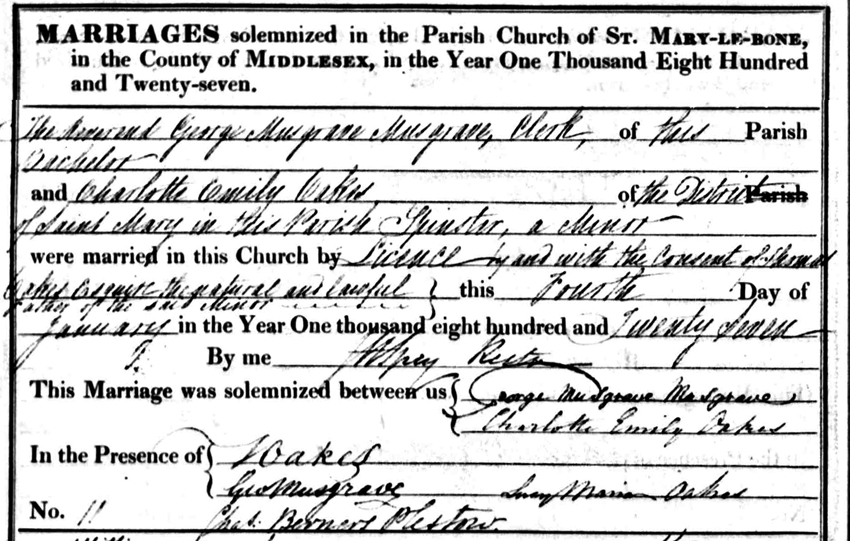 MARRIAGES solemnized in the Parish Church of ST. MARY-LE-BONE,
in the County of MIDDLESEX, in the Year One Thousand Eight Hundred
and Twenty-seven.
The Reverend George Musgrave Musgrave, Clerk, of this Parish
Bachelor
and Charlotte Emily Oakes of the District Parish
of Saint Mary in this Parish Spinster, a Minor
were married in this Church by Licence by and with the Consent of Thomas
Oakes Esquire the natural and lawful } this Fourth Day of
Father of the said Minor
January in the Year One thousand eight hundred and Twenty Seven
By me Rector
This Marriage was solemnized between us { George Musgrave Musgrave
Charlotte Emily Oakes
In the Presence of { TOakes
Geo Musgrave Lucy Maria Oakes
No. 11 Chas. Berners Plestow.